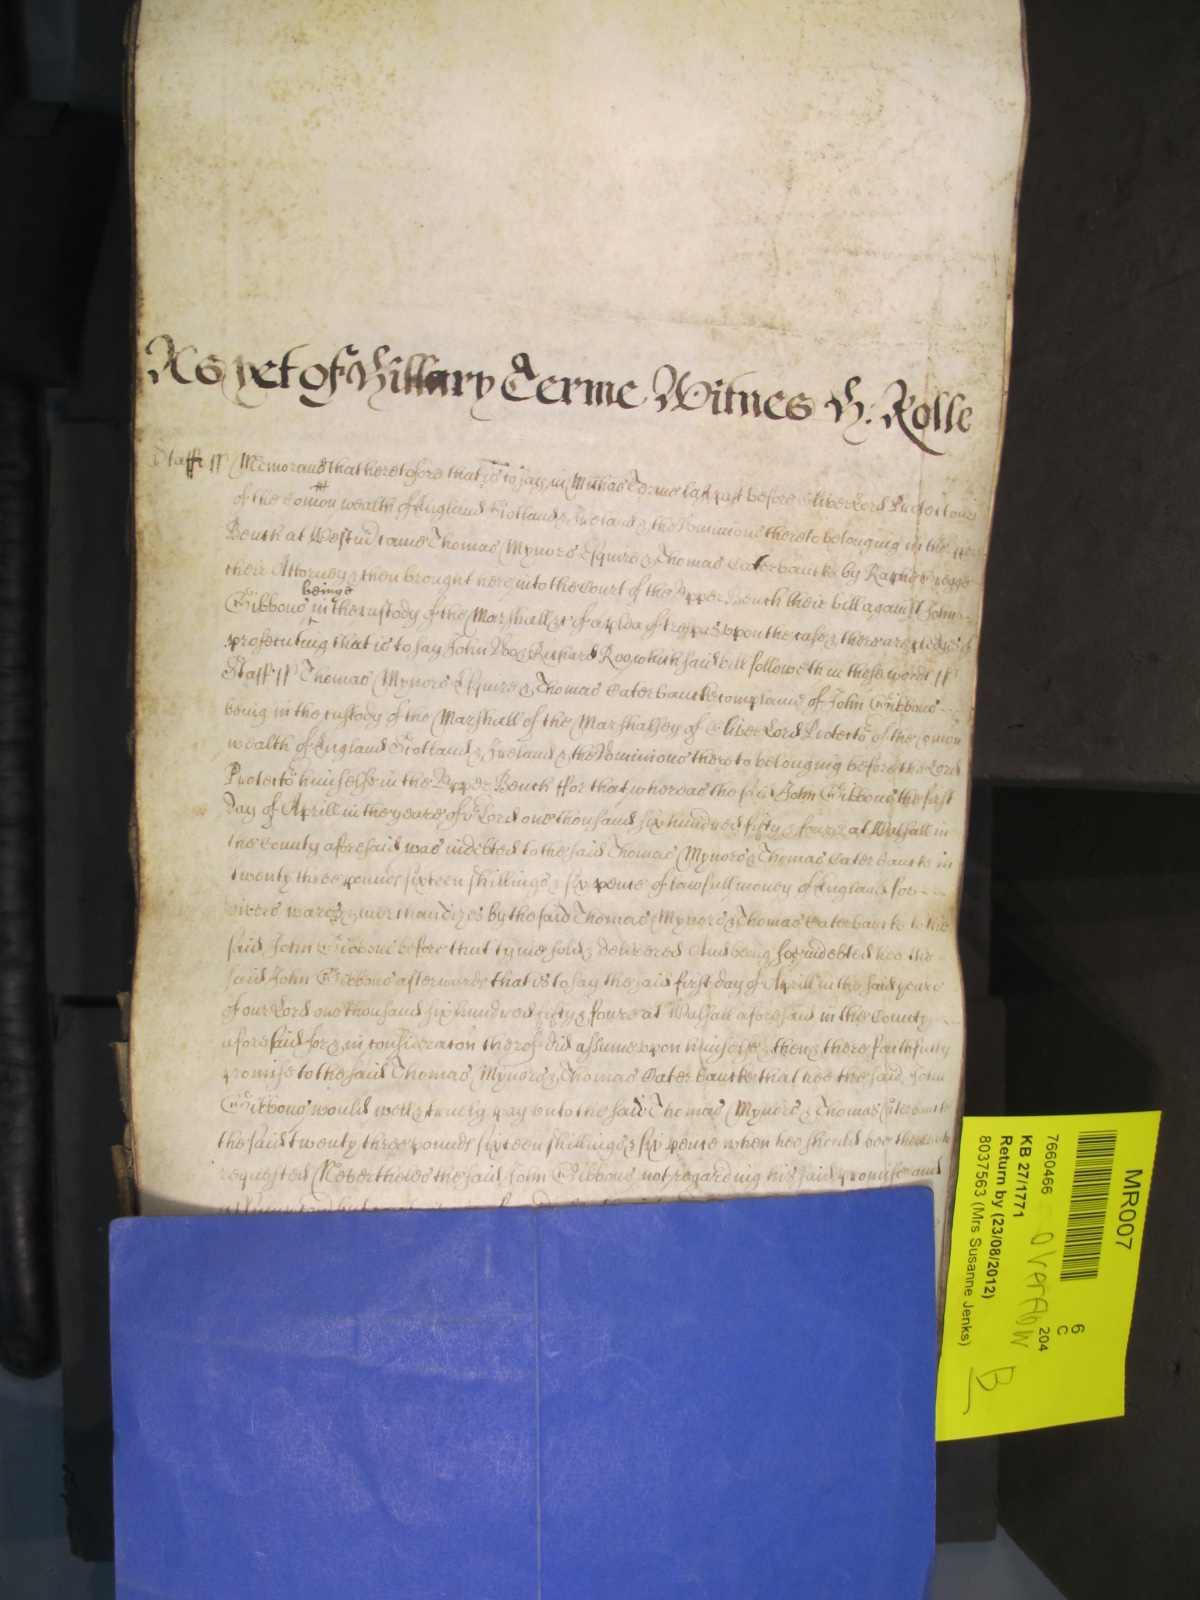 As yet of Hillary Terme Witnes H: Rolle
Staff ss Memorand that heretofore that is to say in Michas Terme last past before Oliver Lord Protectour
of the Comon wealth of England Scotland & Ireland & the Dominions thereto belonging in the
Bench at Westm came Thomas Mynors Esquire & Thomas Caterbancke by Raphe
their Attorney & then brought here into the Court of the Upper Bench their bill against John
Gibbons beinge in the custody of the Marshall &c of a plea of trespas upon the case & there are pledges of
prosecuting that is to say John Doe & Richard Roe which said bill followeth in these words ss
Staff ss Thomas Mynors Esquire & Thomas Caterbancke complaine of John Gibbons
being in the custody of the Marshall of the Marshalsey of Oliver Lord Protector of the Comon
wealth of England Scotland & Ireland & the Dominions thereto belonging before the Lord
Protector himselfe in the Upper Bench ffor that whereas the said John Gibbons the first
day of Aprill in the yeare of or Lord one thousand six hundred fifty & foure at Walsall in
the County aforesaid was indebted to the said Thomas Mynors & Thomas Caterbancke in
twenty three pounds sixteen shillings & six pence of lawfull money of England for
divers wares & merchandizes by the said Thomas Mynors & Thomas Caterbancke to the
said John Gibbons before that tyme sold & delivered And being soe indebted hee the
said John Gibbons afterwards that is to say the said first day of Aprill in the said yeare
of our Lord one thousand six hundred fifty & foure at Walsall aforesaid in the County
aforesaid for & in consideracon therof did assume upon himselfe & then & there faithfully
promise to the said Thomas Mynors & Thomas Caterbancke that hee the said John
Gibbons would well & truely pay unto the said Thomas Mynors & Thomas Caterbancke
the said twenty three pounds sixteen shillings & six pence when hee should bee thereunto
requested Neverthelesse the said John Gibbons not regarding his said promise and
MR007
7660466
204
6
C
KB 27/1771
Overflow
B
Return by (23/08/2012)
8037563 (Mrs Susanne Jenks)